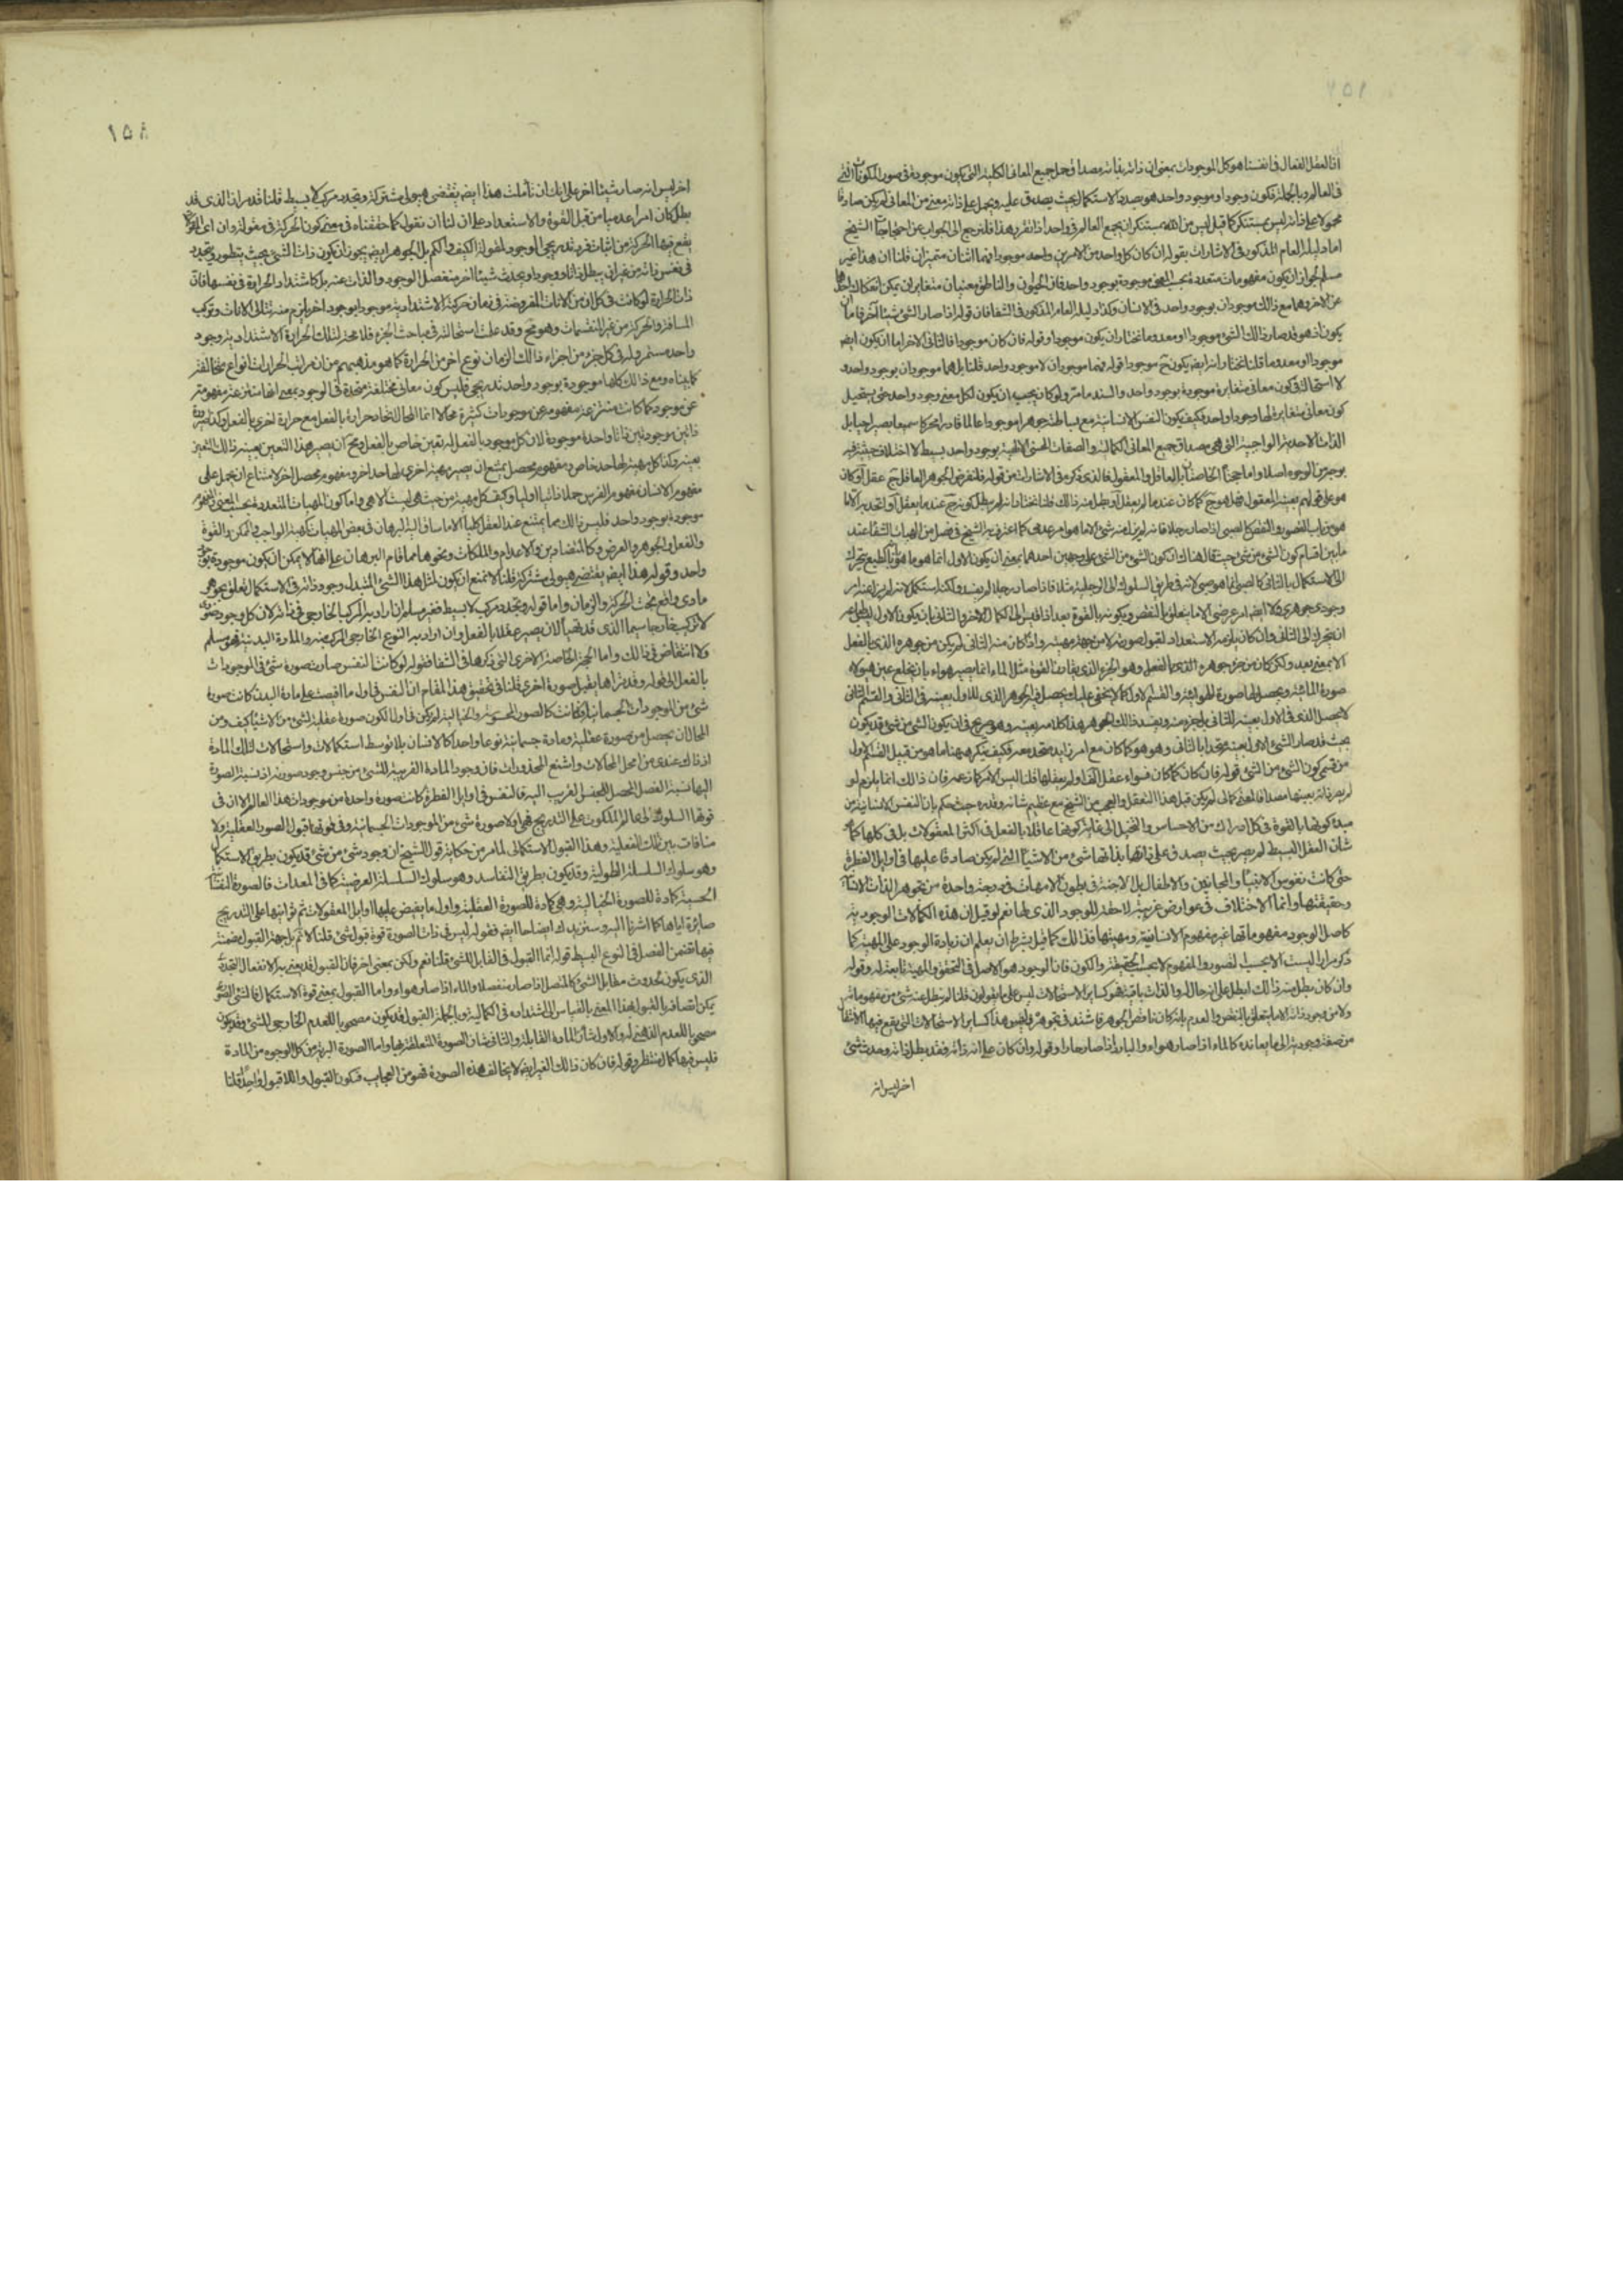 ان العقل الفعال فى انفسنا هو كل الموجودات بمعنى ان ذاته بذاته مصداق حمل جميع المعانى الكلية التى يكون موجودة فى صور المكونات التى
فى العالم وبالجملة فكون وجود او موجود واحد هو بصدد الاستكمال بحيث يصدق عليه ويحمل على ذاته معنى من المعانى لم يكن صادقا
محمولا على ذاته ليس بمستنكر كما قيل ليس من الله بمستنكر ان يجمع العالم فى واحد اذا تقرر هذا فلنرجع الى الجواب عن احتجاجات الشيخ
اما دليله العام المذكور فى الاشارات بقوله ان كان كل واحد من الامرين واحد موجودا فهما اثنان متميزان قلنا ان هذا غير
مسلم لجواز ان يكون مفهومات متعددة بحسب المعنى موجودة بوجود واحد فان الحيوان والناطق معنيان متغايران يمكن انفكاك احدهما
عن الاخر وهما مع ذلك موجودان بوجود واحد فى الانسان وكذا دليله العام المذكور فى الشفا فان قوله اذا صار الشئ شيئا آخر فاما ان
يكون اذ هو قد صار ذلك الشئ موجودا او معدوما نختار ان يكون موجودا وقوله فان كان موجودا فالثانى الاخر اما ان يكون ايضا
موجودا او معدوما قلنا نختار انه ايضا يكون ح موجودا قوله فهما موجودان لا موجود واحد قلنا بل هما موجودان بوجود واحد و
لا استحالة فى كون معانى متغايرة موجودة بوجود واحد والسند ما مر ولو كان يجب ان يكون لكل معنى وجود واحد حتى يستحيل
كون معانى متغايرة لها وجود واحد فكيف يكون النفس الانسانية مع بساطته جوهرا موجودا عالما قادرا محركا سميعا بصيرا حيا بل
الذات الاحدية الواجبية التى هى مصداق جميع المعانى الكمالية والصفات الحسنى الالهية بوجود واحد بسيط لا اختلاف حيثية فيه
بوجه من الوجوه اصلا واما حجتا الخاصتان بالعاقل والمعقول فالذى ذكره فى الاشارات من قوله فلنفرض الجوهر العاقل ح عقل آ وكان
هو على قولهم بعينه المعقول فهل هو ح كما كان عند ما لم يعقل آ او بطل منه ذلك قلنا نختار انه لم يبطل كونه ح عند ما يعقل آ واتحد به الا ما
هو من باب القصور والنقص كالصبى اذا صار رجلا فانه لم يزل عنه شئ الا ما هو امر عدمى كما اعترف به الشيخ فى فصل من الهيات الشفا عند
ما بين اقسام كون الشئ من شئ حيث قال هناك ان كون الشئ من الشئ على وجهين احدهما بمعنى ان يكون الاول انما هو ما هو بانه بالطبع يتحرك
الى الاستكمال بالثانى كالصبى انما هو صبى لانه فى طريق السلوك الى الرجلية مثلا فاذا صار رجلا لم يفسد ولكنه استكمل لانه لم يزل عنه امر
وجودى جوهرى ولا ايضا امر عرضى الا ما يتعلق بالنقص وبكونه بالقوة بعد اذا قيس الى الكمال الاخر والثانى بان يكون الاول ليس طباعه
انه يتحرك الى الثانى وان كان يلزمه الاستعداد لقبول صورته لا من جهة مهيته واذ كان منه الثانى لم يكن من جوهره الذى بالفعل
الا بمعنى بعد ولكن كان من جزء جوهره الذى بالفعل وهو الجزء الذى يقارن القوة مثل الماء انما يصير هواء بان يخلع عن هيولاه
صورة المائية ويحصل لها صورة الهوائية والقسم الاول كما لا يخفى عليك يحصل فيه الجوهر الذى للاول بعينه فى الثانى والقسم الثانى
لا يحصل الذى فى الاول بعينه للثانى بل جزء منه ويفسد ذلك الجوهر هذا كلامه بعينه وهو صريح فى ان يكون الشئ من شئ قد يكون
بحيث قد صار الشئ الاول بعينه متحدا بالثانى وهو هو كما كان مع امر زايد متحد معه فكيف ينكر هيهنا ما هو من قبيل القسم الاول
من قسمى كون الشئ من الشئ قوله فان كان كما كان فسواء عقل آ او لم يعقلها قلنا ليس الامر كما زعمه فان ذلك انما يلزم لو
لم يصر ذاته بعينها مصداقا لمعنى كمالى لم يكن قبل هذا التعقل والعجب من الشيخ مع عظيم شانه وقدره حيث حكم بان النفس الانسانية من
مبدء كونها بالقوة فى كل ادراك من الاحساس والتخيل الى غاية كونها عاقلا بالفعل فى اكثر المعقولات بل فى كلها كما هو
شان العقل البسيط لم يصر بحيث يصدق على ذاتها بذاتها شئ من الاشياء التى لم يكن صادقا عليها فى اوايل الفطرة
حتى كانت نفوس الانبياء والمجانين والاطفال بل الاجنة فى بطون الامهات فى درجة واحدة من تجوهر الذات الانسانية
وحقيقتها وانما الاختلاف فى عوارض غريبة لاحقة للوجود الذى لها نعم لو قيل ان هذه الكمالات الوجودية
كاصل الوجود مفهوماتها غير مفهوم الانسانية ومهيتها فذلك كما قيل بشرط ان يعلم ان زيادة الوجود على المهية كما
ذكر مرارا ليست الا بحسب التصور والمفهوم لا بحسب الحقيقة والكون فان الوجود هو الاصل فى التحقق والمهية تابعة له وقوله
وان كان بطل منه ذلك ابطل على انه حال له والذات باقية فهو كساير الاستحالات ليس على ما يقولون قلنا لم يبطل عنه شئ من مفهوماته
ولا من وجود ذاته الا ما يتعلق بالنقص والعدم بانه كان ناقص الجوهر فاشتد فى تجوهره وليس هذا كساير الاستحالات التى يقع فيها الانتقال
من صفة وجودية الى ما يعانده كالماء اذا صار هواء والبارد اذا صار حارا وقوله وان كان على انه ذاته فقد بطل ذاته وحدث شئ
اخر ليس انه
١٥٨
اخر ليس انه صار شيئا اخر على انك ان تأملت هذا ايضا يقتضى هيولى مشتركة وتجدد مركب لا بسيط قلنا قد مر ان الذى قد
بطل كان امرا عدميا من قبل القوة والاستعداد على ان لنا ان نقول كما حققناه فى معنى كون الحركة فى مقولة وان اى المقولات
يقع فيها الحركة من اثبات فرد تدريجى الوجود لمقولة الكيف والكم بل الجوهر ايضا يجوز ان يكون ذات الشئ بحيث يتطور ويتجدد
فى نفس ذاته من غير ان يبطل ذاتا ووجودا ويحدث شيئا اخر منفصل الوجود والذات عنه بل كاشتداد الحرارة فى نفسها فان
ذات الحرارة لو كانت فى كل ان من الانات المفروضة فى زمان حركته الاشتدادية موجودا بوجود اخر يلزم منه تتالى الانات وتركب
المسافة والحركة من غير المنقسمات وهو مح وقد علمت استحالته فى مباحث الجزء فلا محة لتلك الحرارة الاشتدادية وجود
واحد مستمر وله فى كل جزء من اجزاء ذلك الزمان نوع اخر من الحرارة كما هو مذهبهم من ان مراتب الحرارات انواع متخالفة
كما بيناه ومع ذلك كلها موجودة بوجود واحد تدريجى فليس كون معانى مختلفة متحدة فى الوجود بمعنى انها منتزعة مفهومة
عن موجود كما كانت منتزعة مفهومة عن موجودات كثيرة محالا انما المحال اتحاد حرارة بالفعل مع حرارة اخرى بالفعل وكذا صيرورة
ذاتين موجودتين ذاتا واحدة موجودة لان كل موجود بالفعل له تعين خاص بالفعل ومح ان يصير هذا التعين بعينه ذلك التعين
بعينه وكذا كل مهية لها حد خاص ومفهوم محصل يمتنع ان يصير مهية اخرى لها حد اخر ومفهوم محصل اخر لامتناع ان يحمل على
مفهوم الانسان مفهوم الفرس حملا ذاتيا اوليا وكيف كل مهية من حيث هى ليست الا هى واما كون المهيات المتعددة بحسب المعنى والمفهوم
موجودة بوجود واحد فليس ذلك مما يمتنع عند العقل كليا الا ما ساق اليه البرهان فى بعض المهيات كمهية الواجب والممكن والقوة
والفعل والجوهر والعرض وكالمتضادين والاعدام والملكات ونحوها مما قام البرهان على انها لا يمكن ان يكون موجودة بوجود
واحد وقوله هذا ايضا يقتضى هيولى مشتركة قلنا لا نمنع ان يكون لمثل هذا الشئ المتبدل وجود ذاته فى الاستكمال تعلق بجوهر
مادى واقع تحت الحركة والزمان واما قوله وتجدد مركب لا بسيط فغير مسلم ان اراد به المركب الخارجى فى ذاته لان كل وجود صورى
لا تركيب خارجا سيما الذى قد تهيأ لان يصير عقلا بالفعل وان اراد به النوع الخارجى المركب منه والمادة البدنية فهو مسلم
ولا انتقاض فى ذلك واما الحجة الخاصة الاخرى التى ذكرها فى الشفا فقوله لو كانت النفس صارت صورة شئ فى الموجودات
بالفعل الى قوله وقد نراها يقبل صورة اخرى قلنا فى تحقيق هذا المقام ان النفس فى اول ما افيضت على مادة البدن كانت صورة
شئ من الموجودات الجسمانية فكانت كالصور المحسوسة والخيالية لم يكن فى اول الكون صورة عقلية لشئ من الاشياء كيف ومن
المحال ان يحصل من صورة عقلية ومادة جسمانية نوعا واحدا كالانسان بلا توسط استكمالات واستحالات لتلك المادة
اذ ذلك عندى من امحل المحالات واشنع المحذورات فان وجود المادة القريبة للشئ من جنس وجود صورته اذ نسبة الصورة
اليها نسبة الفصل المحصل للجنس القريب اليه فالنفس فى اوايل الفطرة كانت صورة واحدة من موجودات هذا العالم الا ان فى
قوتها السلوك الى عالم الملكوت على التدريج فهى اولا صورة شئ من الموجودات الجسمانية وفى قوتها قبول الصور العقلية ولا
منافات بين تلك الفعلية وهذا القبول الاستكمالى لما مر من حكاية قول الشيخ ان وجود شئ من شئ قد يكون بطريق الاستكمال
وهو سلوك السلسلة الطولية وقد يكون بطريق التفاسد وهو سلوك السلسلة العرضية كما فى المعدات فالصورة النفسانية
الحسية كمادة للصورة الخيالية وهى كمادة للصورة العقلية واول ما يفيض عليها اوايل المعقولات ثم ثوانيها على التدريج
صائرة اياها كما اشرنا اليه وسنزيدك ايضاحا ايضا فقوله ليس فى ذات الصورة قوة قبول شئ قلنا لا نم بل جهة القبول مضمنة
فيها تضمن الفصل فى النوع البسيط قوله انما القبول فى القابل للشئ قلنا نعم ولكن بمعنى اخر فان القبول قد يعنى به الانفعال التجددى
الذى يكون لحدوث مقابل الشئ كالمتصل اذا صار منفصلا والماء اذا صار هواء واما القبول بمعنى قوة الاستكمال فالشئ الصورى
يمكن اتصافه بالقبول بهذا المعنى بالقياس الى اشتداده فى الكمالية وبالجملة القبول قد يكون مصحوبا للعدم الخارجى للشئ وقد يكون
مصحوبا للعدم الذهنى له والاول شان المادة القابلة والثانى شان الصورة المتعلقة بها واما الصورة البرية من كل الوجوه من المادة
فليس فيها كمال منتظر وقوله فان كان ذلك الغير ايضا لا يخالف هذه الصورة فهو من العجايب فيكون القبول واللا قبول واحدا قلنا